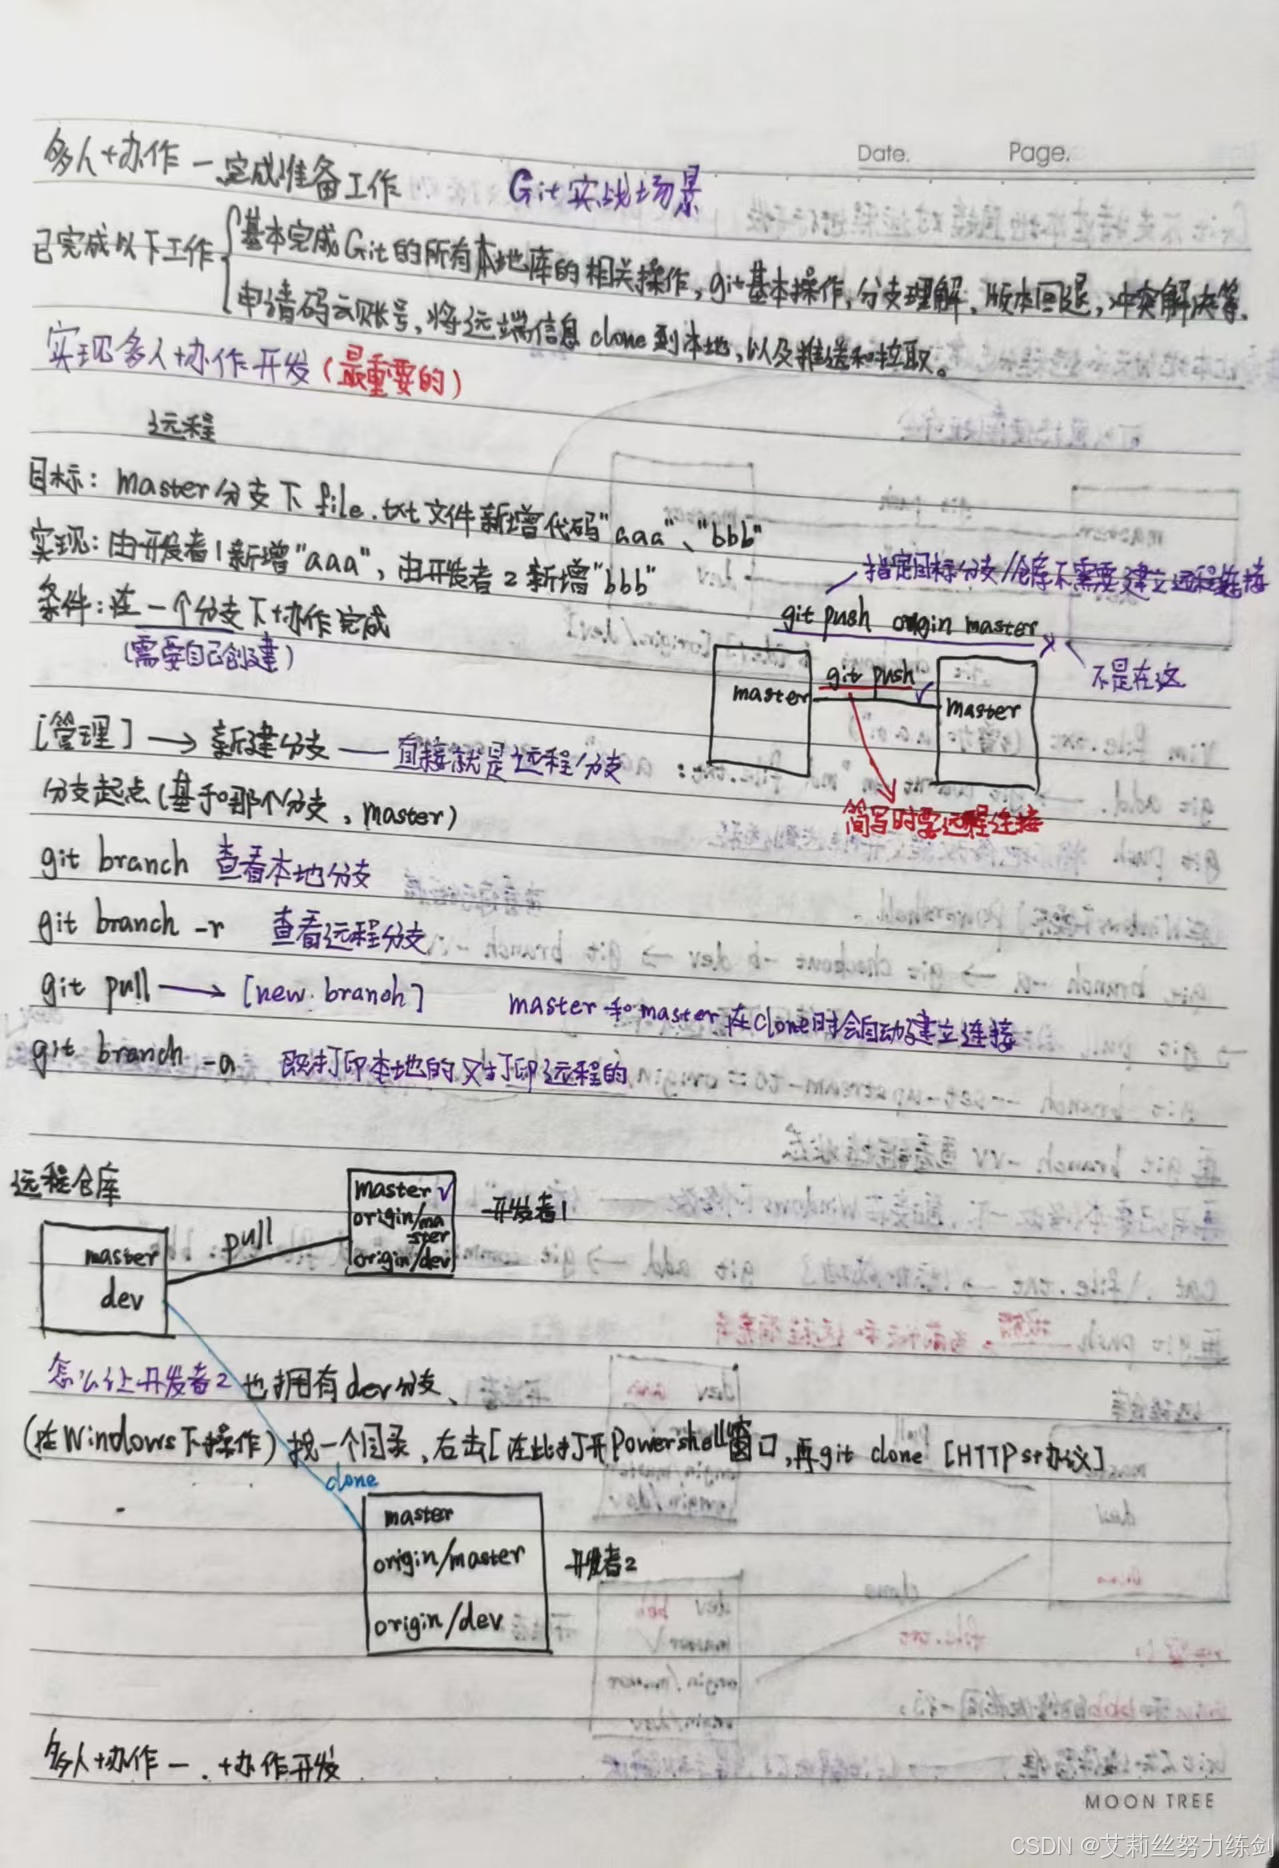 Date. Page.
多人协作一完成准备工作 Git实战场景
已完成以下工作
基本完成Git的所有本地库的相关操作,git基本操作,分支理解,版本回退,冲突解决等.
申请码云账号,将远端信息clone到本地,以及推送和拉取。
实现多人协作开发(最重要的)
远程
目标:master分支下file.txt文件新增代码"aaa"、"bbb"
实现:由开发者1新增"aaa",由开发者2新增"bbb"
条件:在一个分支下协作完成
(需要自己创建)
指定目标分支/仓库不需要建立远程连接
git push origin master
不是在这
master git push master
简写时要远程连接
[管理]→新建分支——直接就是远程分支
分支起点(基于哪个分支,master)
git branch 查看本地分支
git branch -r 查看远程分支
git pull→[new branch] master和master在clone时会自动建立连接
git branch -a 既打印本地的又打印远程的
远程仓库
master
dev
pull
master✓
origin/ma
ster
origin/dev
开发者1
怎么让开发者2也拥有dev分支、
(在Windows下操作)找一个目录、右击[在此打开Powershell窗口,再git clone [HTTPS协议]
clone
master
origin/master
origin/dev
开发者2
多人协作一.协作开发
MOON TREE
CSDN @艾莉丝努力练剑